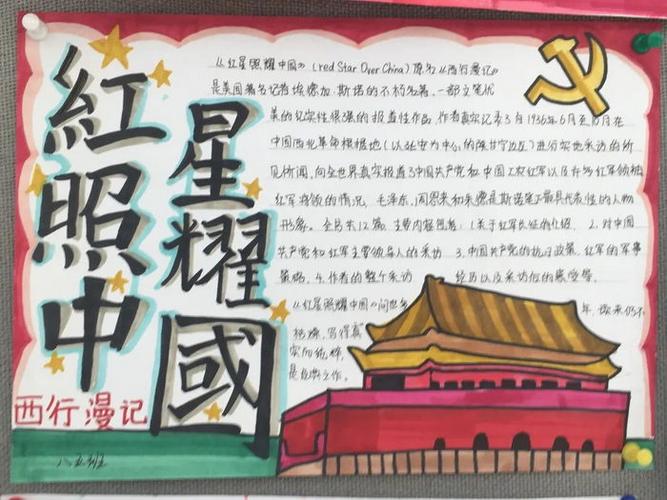 紅星照耀中國
西行漫记
八五班
《红星照耀中国》（red Star Over China）原名《西行漫记》
是美国著名记者埃德加·斯诺的不朽名著，一部文笔优
美的纪实性很强的报道性作品，作者真实记录了自1936年6月至10月在
中国西北革命根据地（以延安为中心的陕甘宁边区）进行实地采访的所
见所闻，向全世界真实报道了中国共产党和中国工农红军以及许多红军领袖
红军将领的情况，毛泽东、周恩来和朱德是斯诺笔下最具代表性的人物
形象。全书共12篇，主要内容包括：1.关于红军长征的介绍，2.对中国
共产党和红军主要领导人的采访 3.中国共产党的抗日政策，红军的军事
策略，4.作者的整个采访 经历以及采访后的感受等
《红星照耀中国》问世多 年，读来仍不
枯燥，写得真
实而
是经典之作。